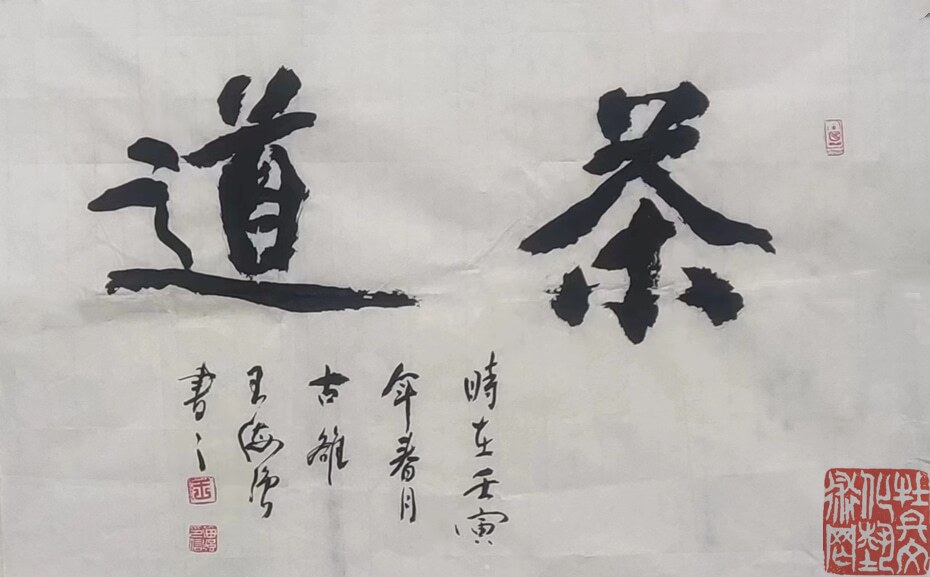 茶道
時在壬寅
年春月
古雒
王海
書之